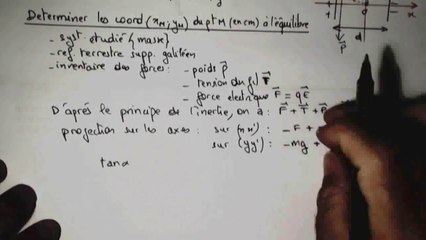 Déterminer les coord (xM; yM) du pt M (en cm) à l'équilibre
- syst. étudié {masse}
- réf. terrestre supp. galiléen
- inventaire des forces : - poids P
- tension du fil T
- force électrique F = qE
D'après le principe de l'inertie, on a : F + T +
projection sur les axes : sur (xx') : -F +
sur (yy') : -mg +
tanα
P
d